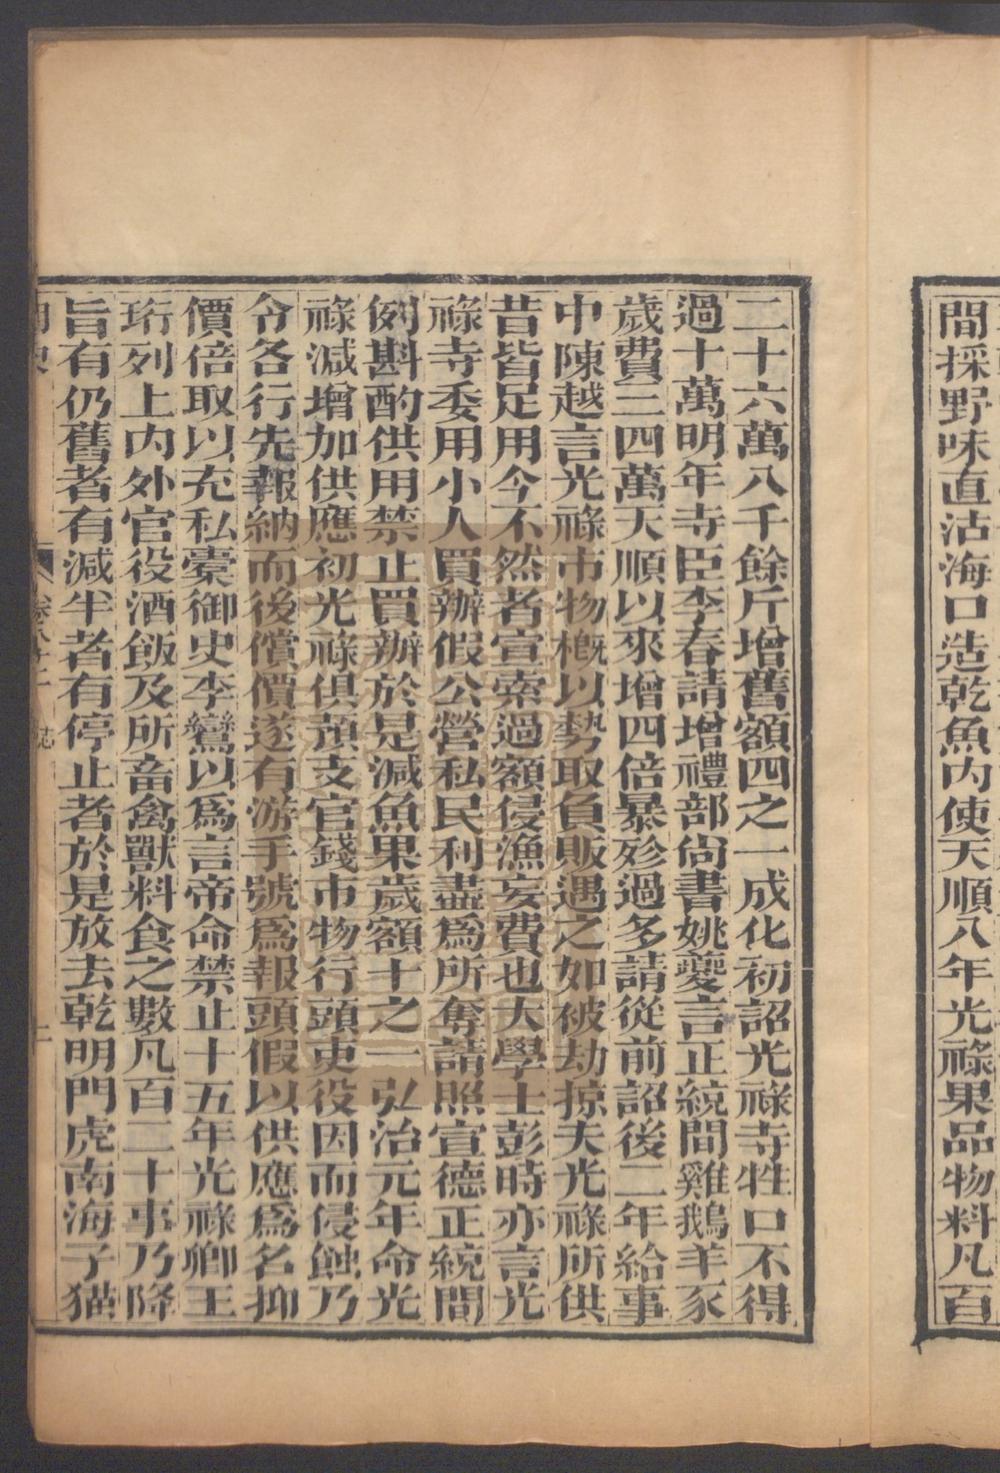 間採野味直沽海口造乾魚內使天順八年光祿果品物料凡百
二十六萬八千餘斤增舊額四之一成化初詔光祿寺牲口不得
過十萬明年寺臣李春請增禮部尙書姚夔言正統間雞鵝羊豕
歲費三四萬天順以來增四倍暴殄過多請從前詔後二年給事
中陳越言光祿市物槪以勢取負販遇之如被劫掠夫光祿所供
昔皆足用今不然者宣索過額侵漁妄費也大學士彭時亦言光
祿寺委用小人買辦假公營私民利盡爲所奪請照宣德正統間
例斟酌供用禁止買辦於是減魚果歲額十之一弘治元年命光
祿減增加供應初光祿俱預支官錢市物行頭吏役因而侵蝕乃
令各行先報納而後償價遂有游手號爲報頭假以供應爲名抑
價倍取以充私橐御史李鸞以爲言帝命禁止十五年光祿卿王
珩列上內外官役酒飯及所畜禽獸料食之數凡百二十事乃降
旨有仍舊者有減半者有停止者於是放去乾明門虎南海子猫